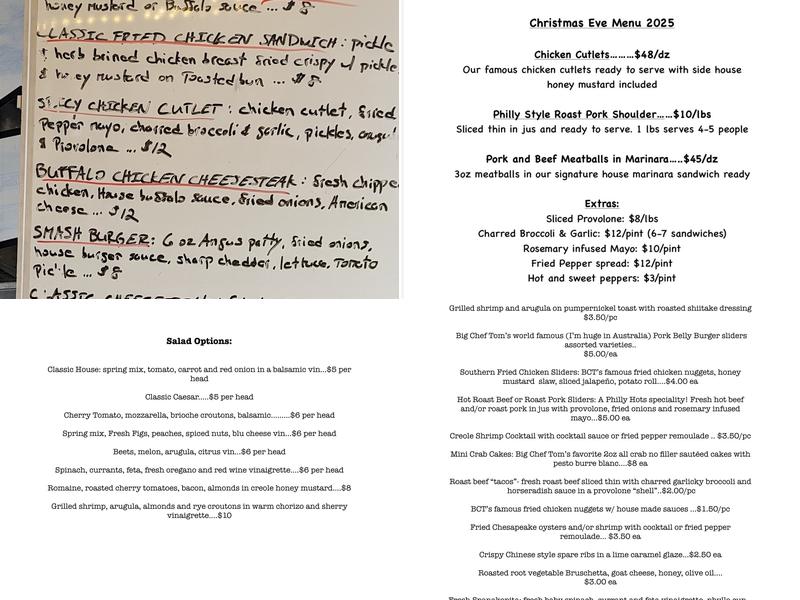 honey mustard or Buffalo sauce ... $ 8
CLASSIC FRIED CHICKEN SANDWICH : pickle
& herb brined chicken breast fried crispy w/ pickle
& honey mustard on Toasted bun ... $ 8
SPICY CHICKEN CUTLET : chicken cutlet, fried
Pepper mayo, charred broccoli & garlic, pickles,
& Provolone ... $12
BUFFALO CHICKEN CHEESESTEAK : fresh chippe
chicken, House buffalo sauce, fried onions, American
cheese ... $12
SMASH BURGER: 6 oz Angus patty, fried onions,
house burger sauce, sharp cheddar, lettuce, Tomato
Pickle ... $ 8
Salad Options:
Classic House: spring mix, tomato, carrot and red onion in a balsamic vin...$5 per
head
Classic Caesar.....$5 per head
Cherry Tomato, mozzarella, brioche croutons, balsamic.........$6 per head
Spring mix, Fresh Figs, peaches, spiced nuts, blu cheese vin...$6 per head
Beets, melon, arugula, citrus vin...$6 per head
Spinach, currants, feta, fresh oregano and red wine vinaigrette....$6 per head
Romaine, roasted cherry tomatoes, bacon, almonds in creole honey mustard....$8
Grilled shrimp, arugula, almonds and rye croutons in warm chorizo and sherry
vinaigrette....$10
Christmas Eve Menu 2025
Chicken Cutlets.........$48/dz
Our famous chicken cutlets ready to serve with side house
honey mustard included
Philly Style Roast Pork Shoulder......$10/lbs
Sliced thin in jus and ready to serve. 1 lbs serves 4-5 people
Pork and Beef Meatballs in Marinara.....$45/dz
3oz meatballs in our signature house marinara sandwich ready
Extras:
Sliced Provolone: $8/lbs
Charred Broccoli & Garlic: $12/pint (6-7 sandwiches)
Rosemary infused Mayo: $10/pint
Fried Pepper spread: $12/pint
Hot and sweet peppers: $3/pint
Grilled shrimp and arugula on pumpernickel toast with roasted shiitake dressing
$3.50/pc
Big Chef Tom's world famous (I'm huge in Australia) Pork Belly Burger sliders
assorted varieties..
$5.00/ea
Southern Fried Chicken Sliders: BCT's famous fried chicken nuggets, honey
mustard slaw, sliced jalapeño, potato roll....$4.00 ea
Hot Roast Beef or Roast Pork Sliders: A Philly Hots speciality! Fresh hot beef
and/or roast pork in jus with provolone, fried onions and rosemary infused
mayo...$5.00 ea
Creole Shrimp Cocktail with cocktail sauce or fried pepper remoulade .. $3.50/pc
Mini Crab Cakes: Big Chef Tom's favorite 2oz all crab no filler sautéed cakes with
pesto burre blanc....$8 ea
Roast beef "tacos"- fresh roast beef sliced thin with charred garlicky broccoli and
horseradish sauce in a provolone "shell"..$2.00/pc
BCT's famous fried chicken nuggets w/ house made sauces ...$1.50/pc
Fried Chesapeake oysters and/or shrimp with cocktail or fried pepper
remoulade... $3.50 ea
Crispy Chinese style spare ribs in a lime caramel glaze...$2.50 ea
Roasted root vegetable Bruschetta, goat cheese, honey, olive oil....
$3.00 ea